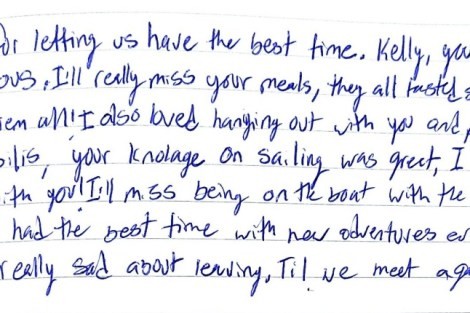 or letting us have the best time. Kelly, you
ous. I'll really miss your meals, they all tasted s
em all! I also loved hanging out with you and,
ilis, your Knolage on sailing was great, I
ith you! I'll miss being on the boat with the
had the best time with new adventures ev
really sad about leaving, Til we meet aga